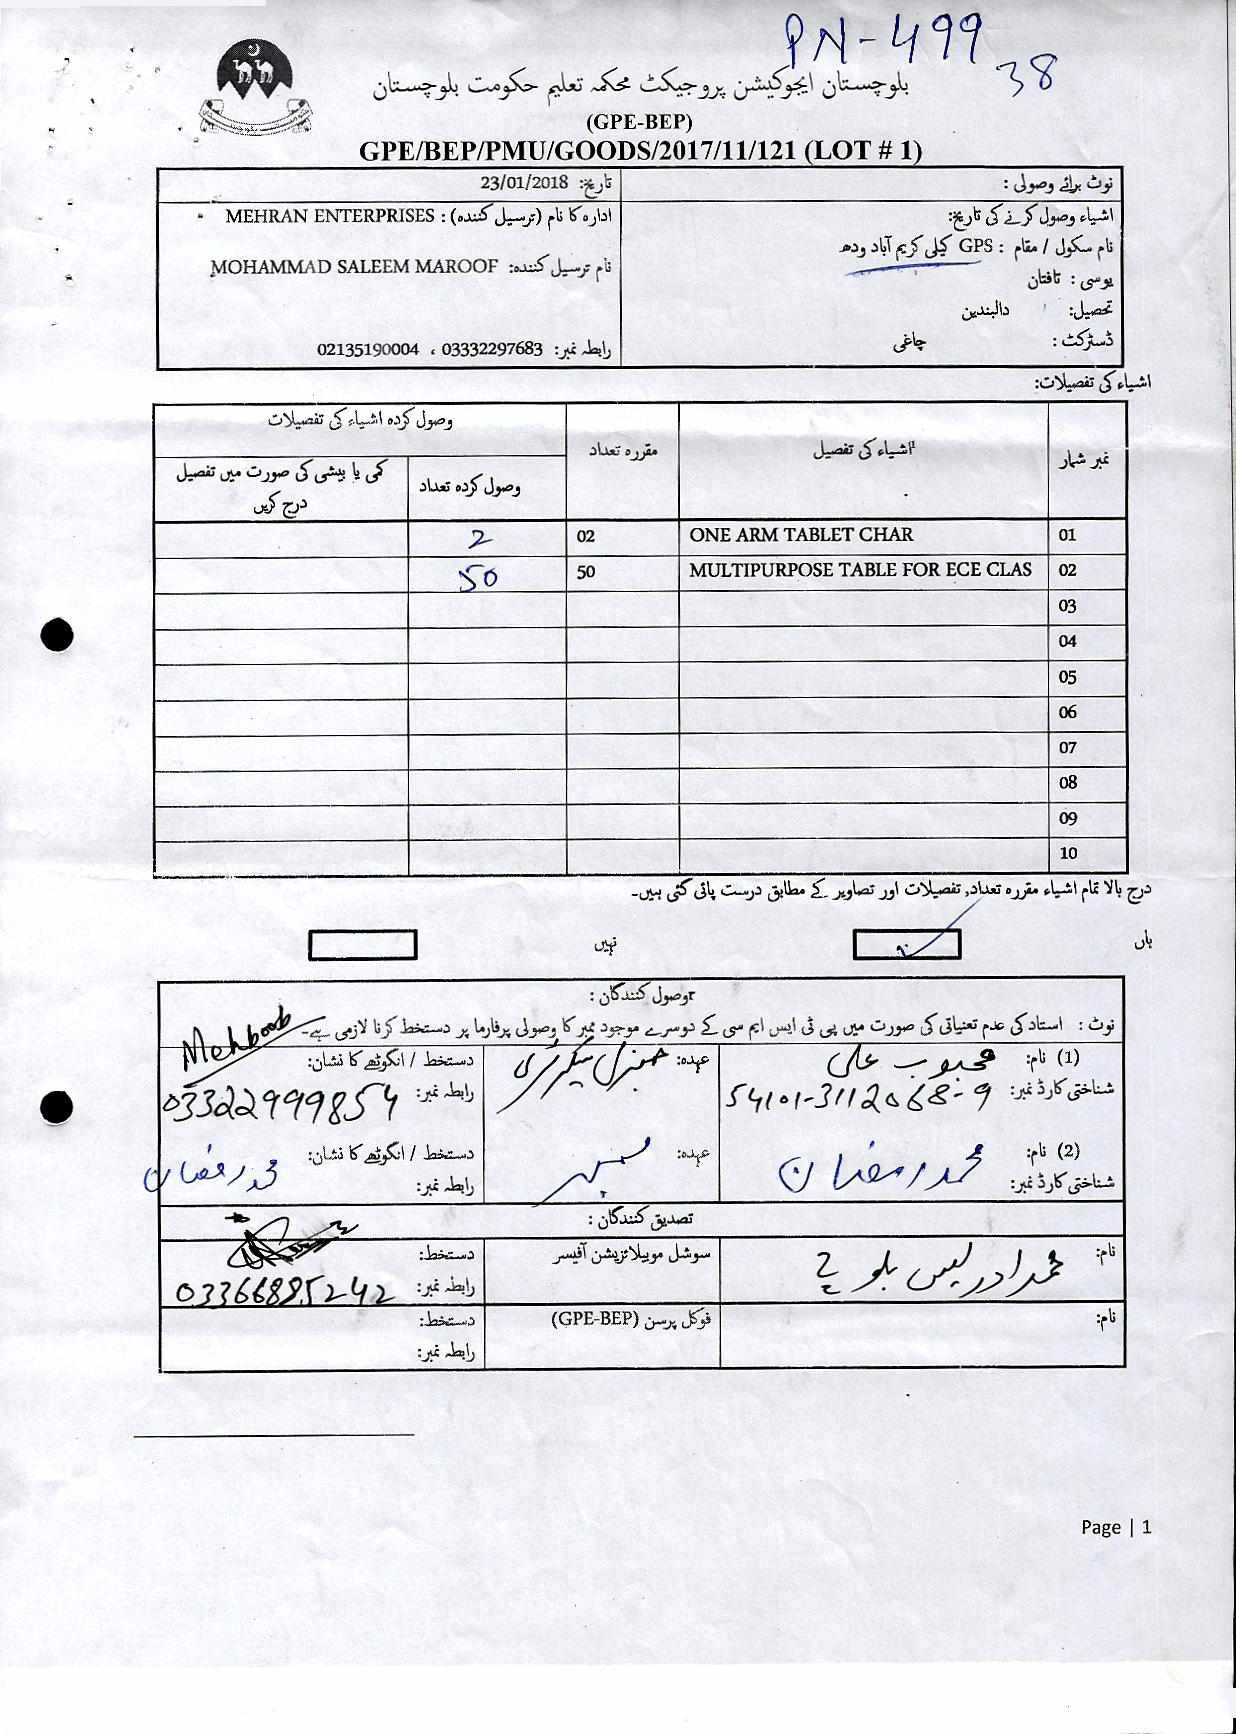 PN-499
38
بلوچستان ایجوکیشن پروجیکٹ محکمہ تعلیم حکومت بلوچستان
(GPE-BEP)
GPE/BEP/PMU/GOODS/2017/11/121 (LOT # 1)
نوٹ برائے وصولی :
تاریخ: 23/01/2018
اشیاء وصول کرنے کی تاریخ:
ادارہ کا نام (ترسیل کنندہ) : MEHRAN ENTERPRISES
نام سکول / مقام : GPS کیلی کریم آباد ودھ
نام ترسیل کنندہ: MOHAMMAD SALEEM MAROOF
یوسی : تافتان
تحصیل: دالبندین
ڈسٹرکٹ : چاغی
رابطہ نمبر: 03332297683 ، 02135190004
اشیاء کی تفصیلات:
نمبر شمار اشیاء کی تفصیل مقررہ تعداد وصول کردہ اشیاء کی تفصیلات
وصول کردہ تعداد کمی یا بیشی کی صورت میں تفصیل درج کریں
01 ONE ARM TABLET CHAR 02 2
02 MULTIPURPOSE TABLE FOR ECE CLAS 50 50
03
04
05
06
07
08
09
10
درج بالا تمام اشیاء مقررہ تعداد, تفصیلات اور تصاویر کے مطابق درست پائی گئی ہیں۔
ہاں نہیں
وصول کنندگان :
نوٹ : استاد کی عدم تعنیاتی کی صورت میں پی ٹی ایس ایم سی کے دوسرے موجود ممبر کا وصولی پرفارما پر دستخط کرنا لازمی ہے۔
(1) نام: محبوب علی عہدہ: جنرل سیکرٹری دستخط / انگوٹھے کا نشان: Mehboob
شناختی کارڈ نمبر: 54101-3112068-9 رابطہ نمبر: 03322999854
(2) نام: محمد رمضان عہدہ: ممبر دستخط / انگوٹھے کا نشان: محمد رمضان
شناختی کارڈ نمبر: رابطہ نمبر:
تصدیق کنندگان :
نام: محمد ادریس بلوچ سوشل موبیلائزیشن آفیسر دستخط:
رابطہ نمبر: 03366885242
نام: فوکل پرسن (GPE-BEP) دستخط:
رابطہ نمبر:
Page | 1